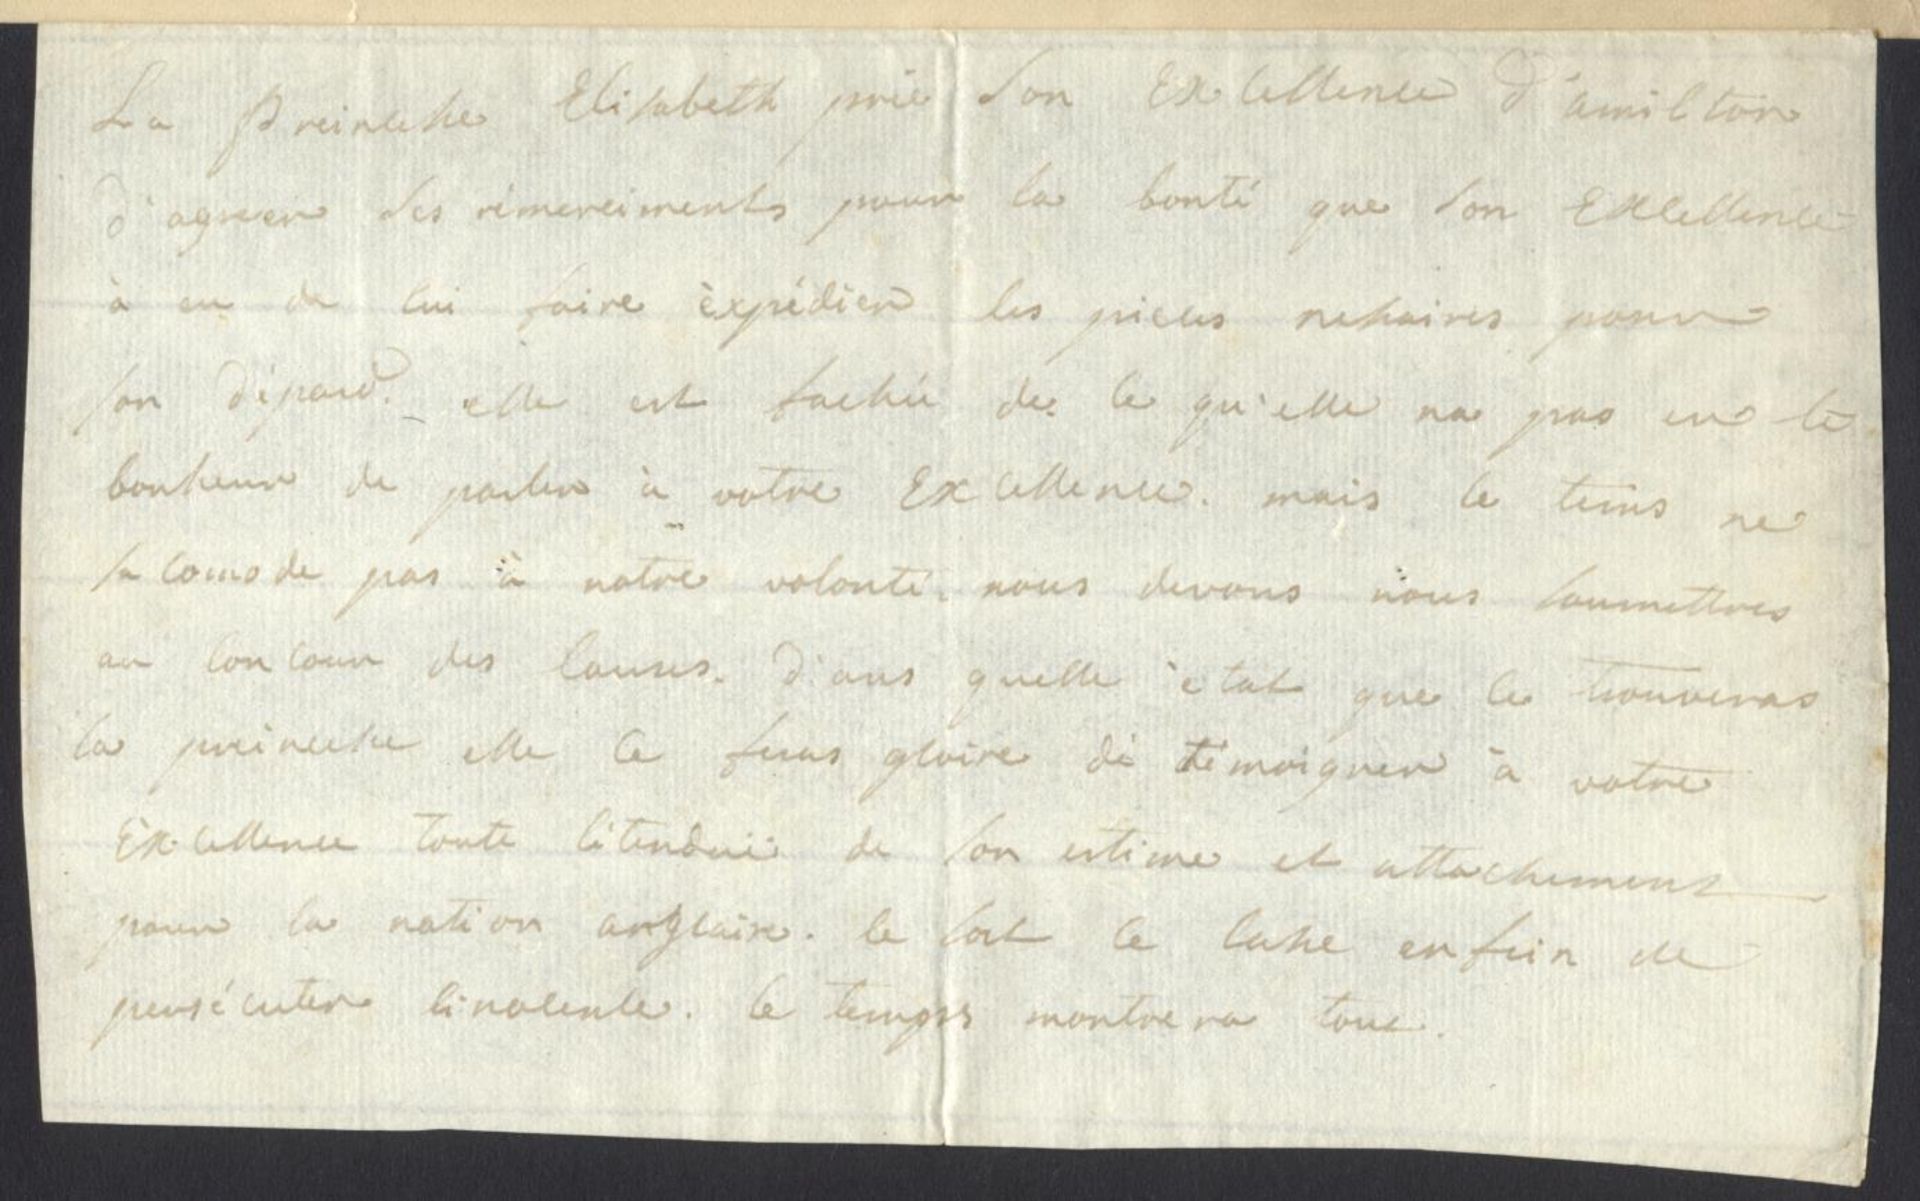 La Preincesse Elisabeth prie son Excellence d'amilton
d'agreer ses rémerciments pour la bonté que son Excellence
à eu de lui faire èxpédier les pieces nessaires pour
son dépard. elle est fachée de ce qu'elle na pas eu le
bonheur de parler à votre Excellence. mais le tems ne
sacomode pas à notre volonté. nous devons nous soumettres
au concour des causes. d'ans quelle ètat que ce trouveras
la preincesse elle ce feras gloire dé témoigner à votre
Excellence toute l'étenduë de son estime et attachement
pour la nation anglaise. le sort ce lasse enfein de
persécuter linolence. le temps montrera tout.